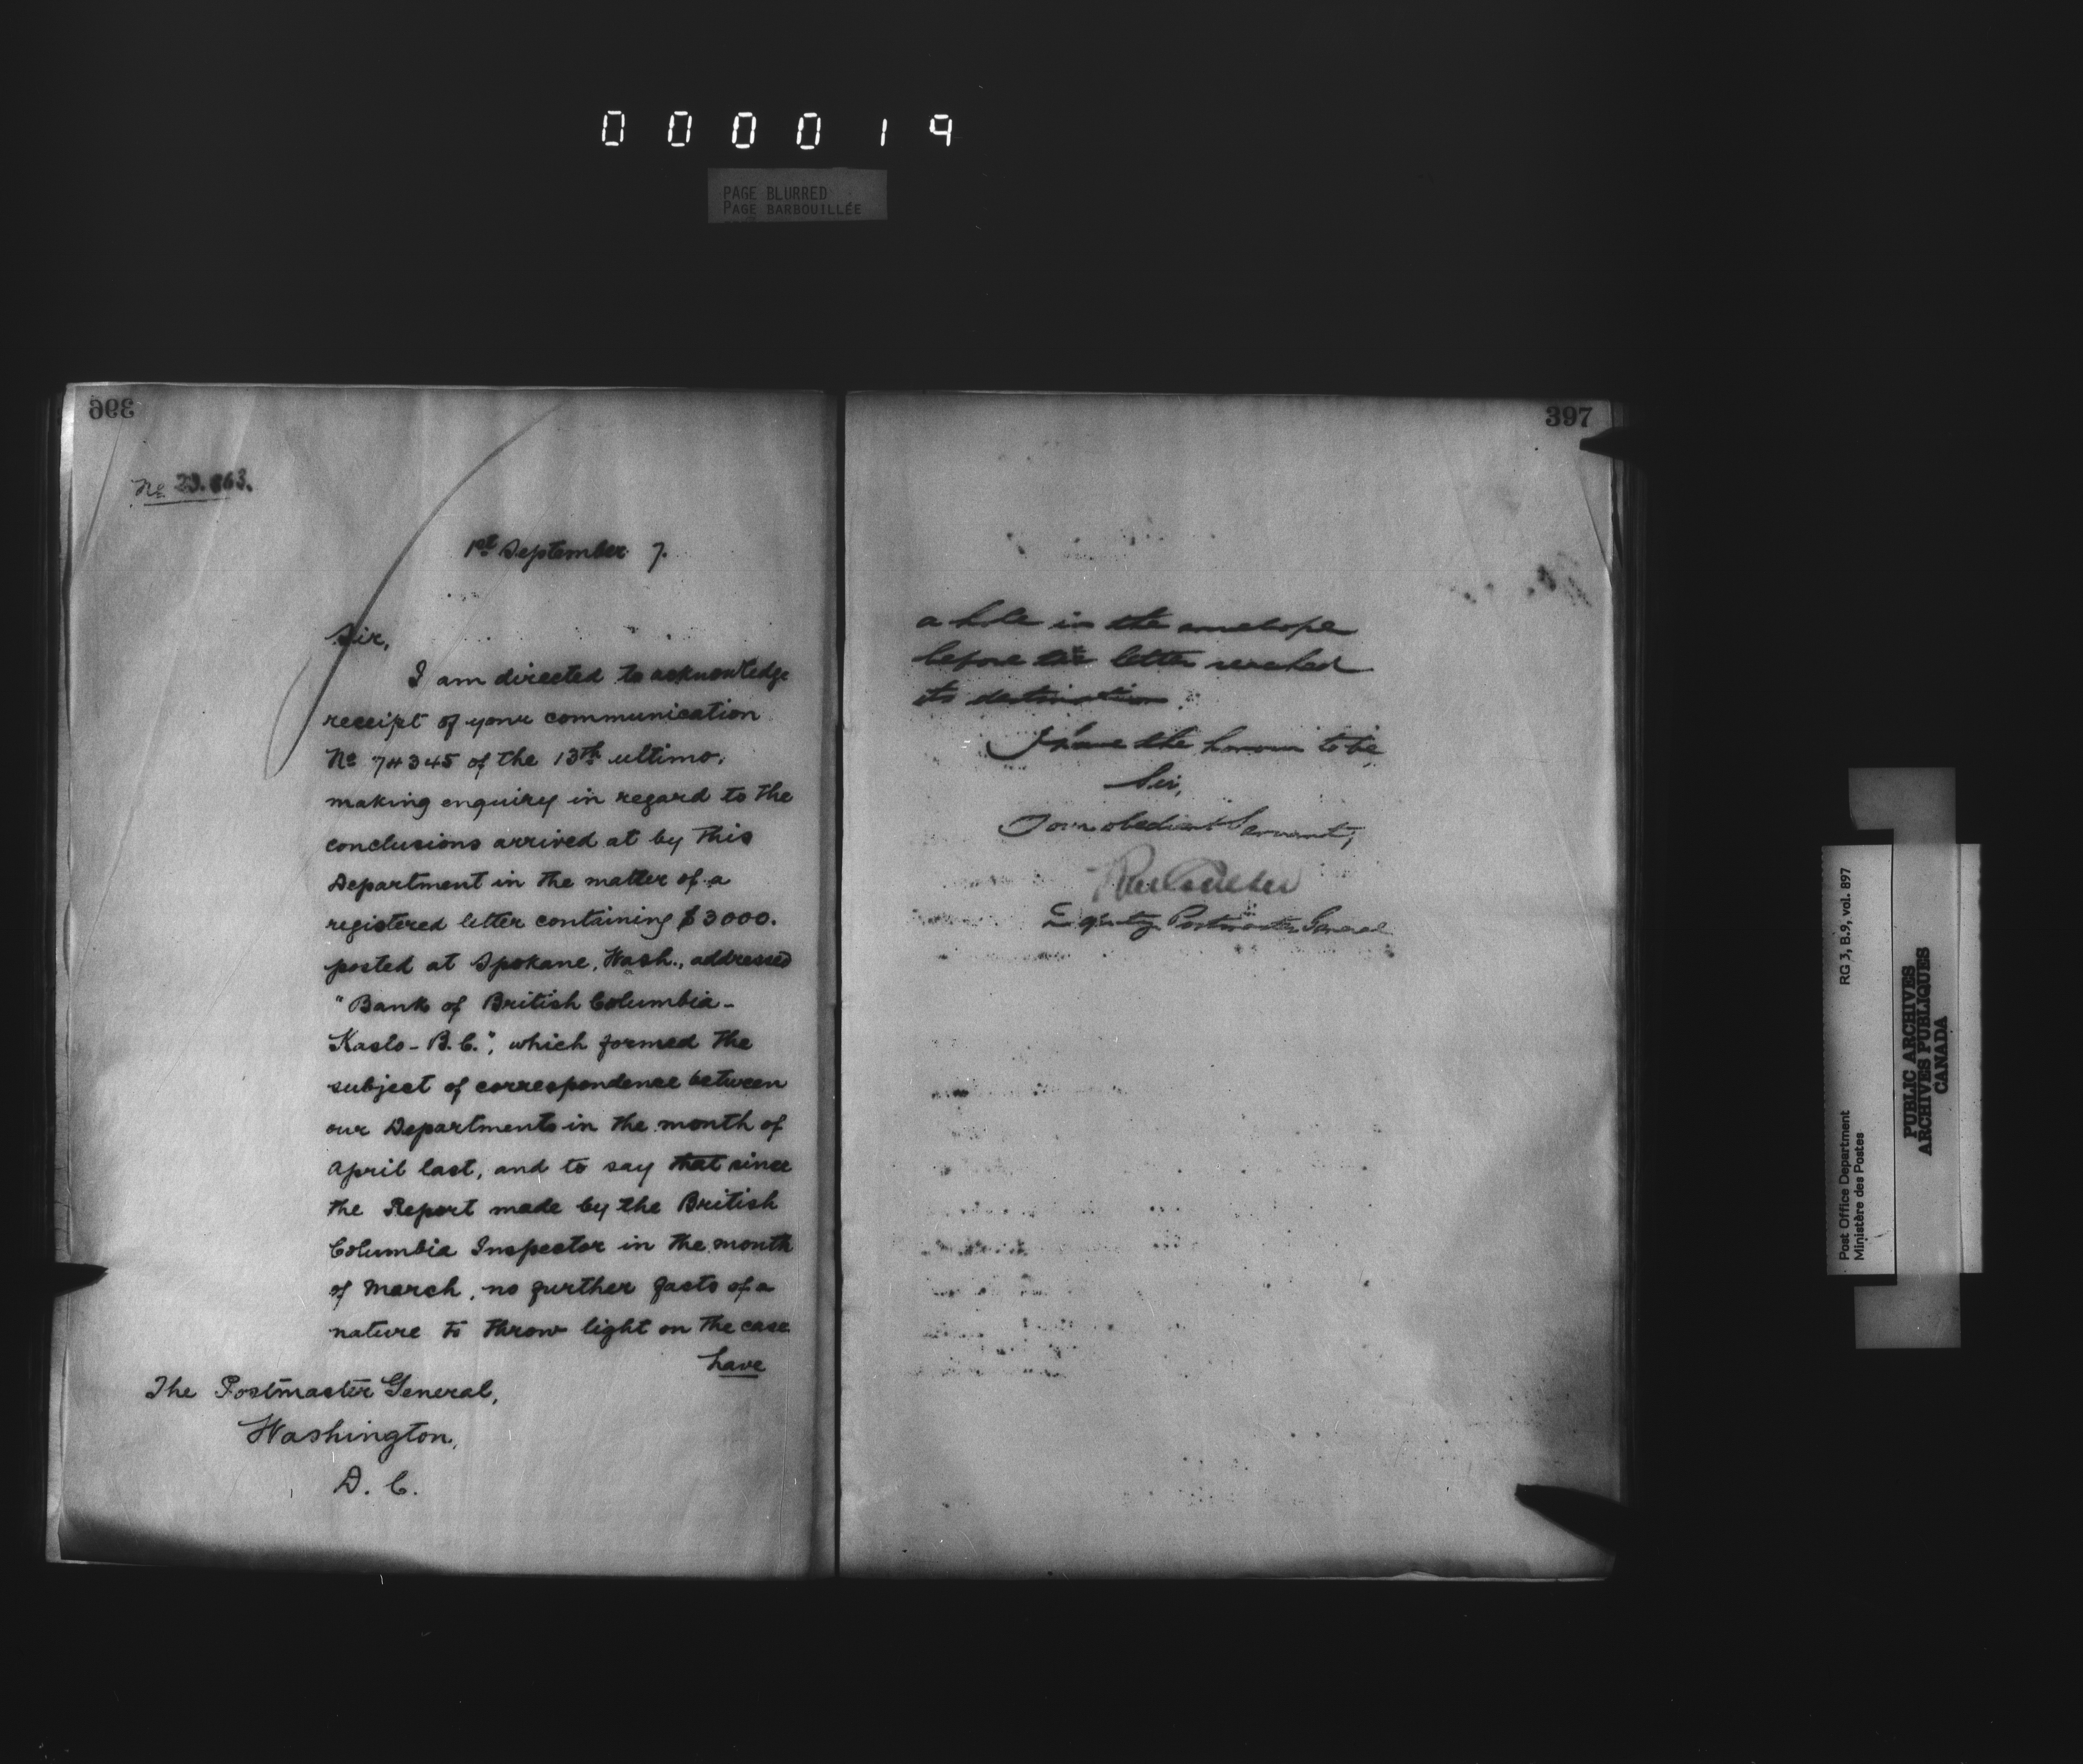 000019
PAGE BLURRED
PAGE BARBOUILLÉE
396
No. 29.863.
1st September 7.
Sir,
I am directed to acknowledge
receipt of your communication
No 74345 of the 13th ultimo,
making enquiry in regard to the
conclusions arrived at by this
Department in the matter of a
registered letter containing $3000.
posted at Spokane, Wash., addressed
"Bank of British Columbia-
Kaslo-B.C.", which formed the
subject of correspondence between
our Departments in the month of
April last, and to say that since
the Report made by the British
Columbia Inspector in the month
of March, no further facts of a
nature to throw light on the case
have
The Postmaster General,
Washington,
D. C.
397
a hole in the envelope
before the letter reached
its destination.
I have the honour to be,
Sir,
Your obedient Servant,
Deputy Postmaster General
Post Office Department
Ministère des Postes
RG 3, B.9, vol. 897
PUBLIC ARCHIVES
ARCHIVES PUBLIQUES
CANADA